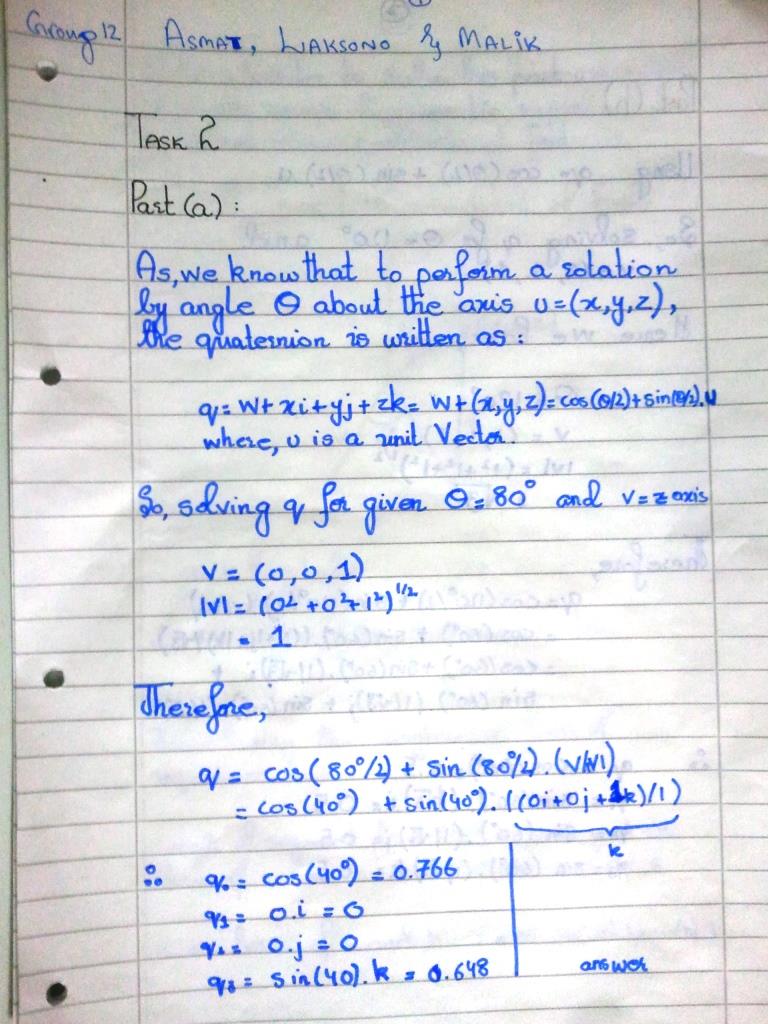 Group 12 ASMAT, LAKSONO & MALIK
TASK 2
Part (a) :
As, we know that to perform a rotation
by angle θ about the axis u=(x,y,z),
the quaternion is written as :
q = w + xi + yj + zk = w + (x,y,z) = cos(θ/2) + sin(θ/2).u
where, u is a unit Vector
So, solving q for given θ = 80° and v = z axis
v = (0,0,1)
|v| = (0² + 0² + 1²)^1/2
= 1
Therefore,
q = cos(80°/2) + sin(80°/2).(v/|v|)
= cos(40°) + sin(40°).((0i+0j+1k)/1)
k
∴ q₀ = cos(40°) = 0.766
q₁ = 0.i = 0
q₂ = 0.j = 0
q₃ = sin(40).k = 0.648 answer